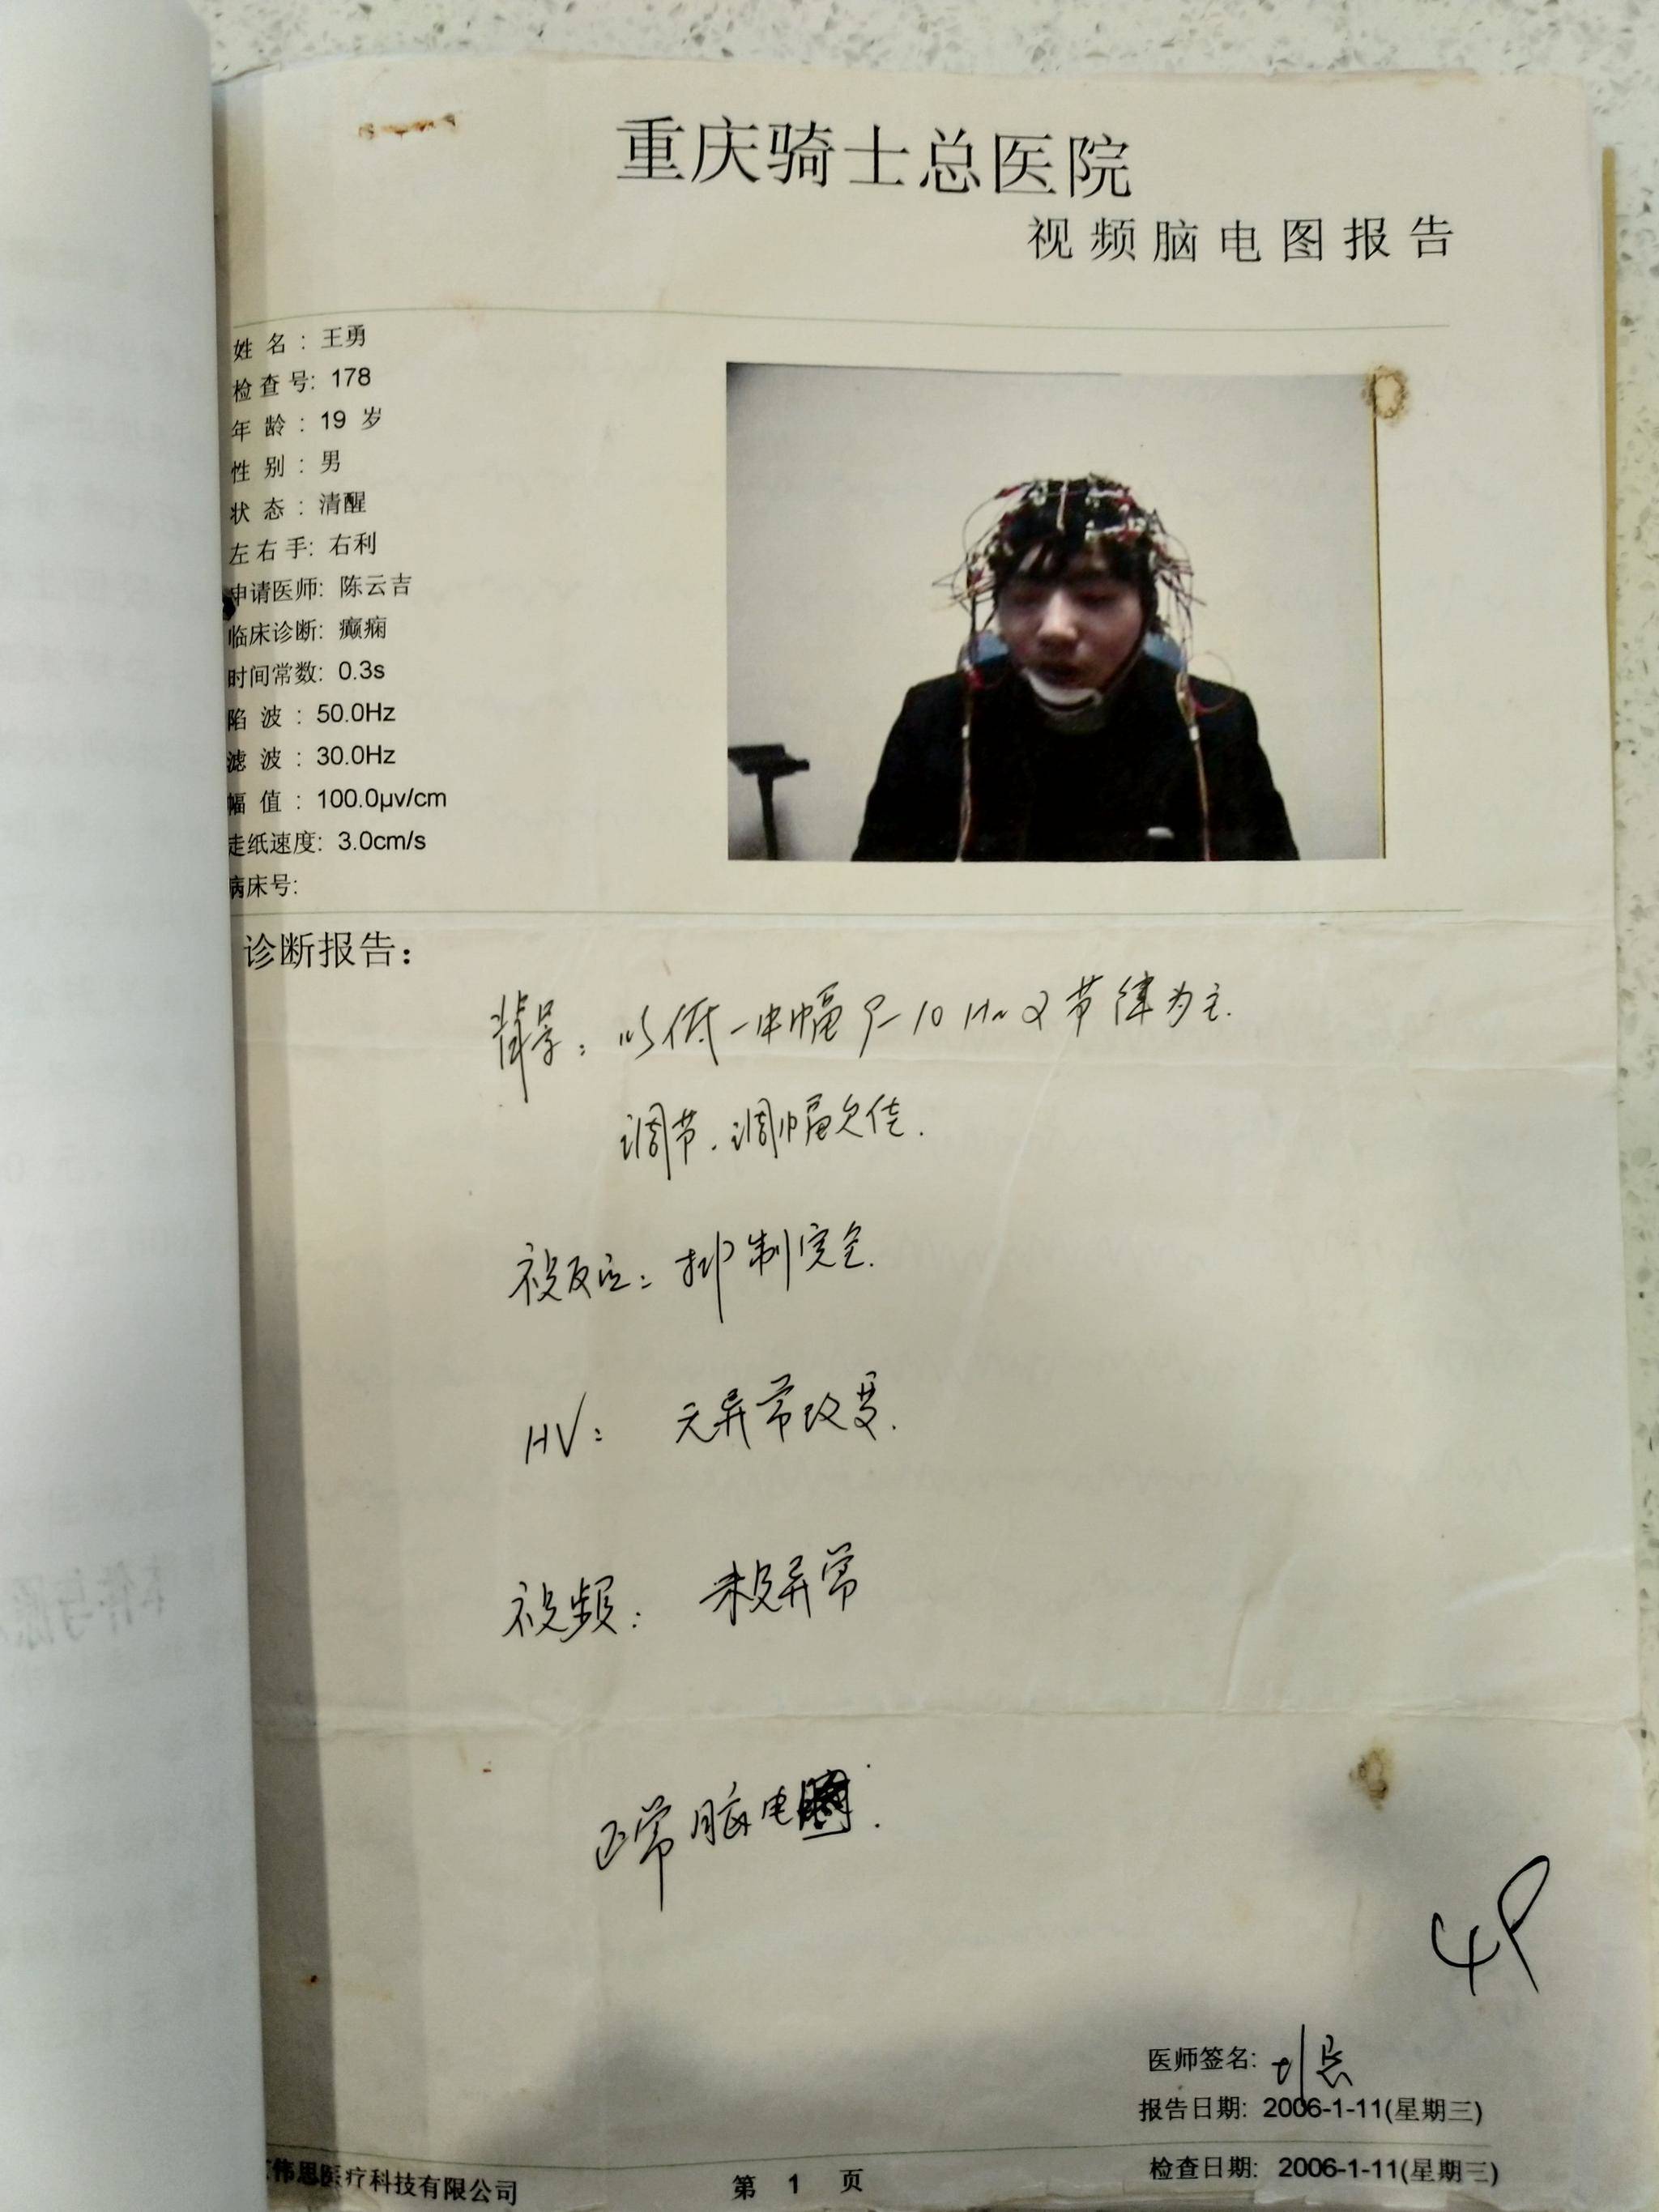 重庆骑士总医院
视频脑电图报告
姓 名 : 王勇
检查号: 178
年 龄 : 19 岁
性 别 : 男
状 态 : 清醒
左右手: 右利
申请医师: 陈云吉
临床诊断: 癫痫
时间常数: 0.3s
陷 波 : 50.0Hz
滤 波 : 30.0Hz
幅 值 : 100.0μv/cm
走纸速度: 3.0cm/s
病床号:
诊断报告:
背景: 以低-中幅9-10Hzα节律为主.
调节.调幅欠佳.
视反应: 抑制完全.
HV: 无异常改变.
视频: 未见异常
正常脑电图.
4P
医师签名:
报告日期: 2006-1-11(星期三)
伟思医疗科技有限公司
第 1 页
检查日期: 2006-1-11(星期三)